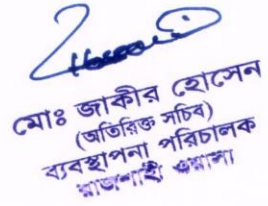 মোঃ জাকীর হোসেন
(অতিরিক্ত সচিব)
ব্যবস্থাপনা পরিচালক
রাজশাহী ওয়াসা